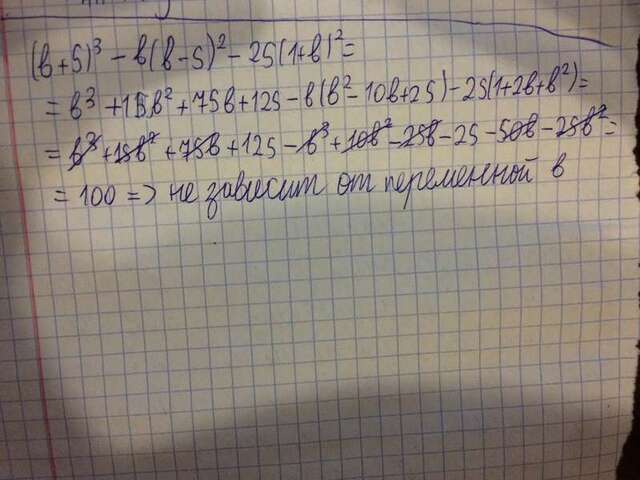 (b+5)³ - b(b-5)² - 25(1+b)² =
= b³ + 15b² + 75b + 125 - b(b² - 10b + 25) - 25(1+2b+b²) =
= b³ + 15b² + 75b + 125 - b³ + 10b² - 25b - 25 - 50b - 25b² =
= 100 => не зависит от переменной в